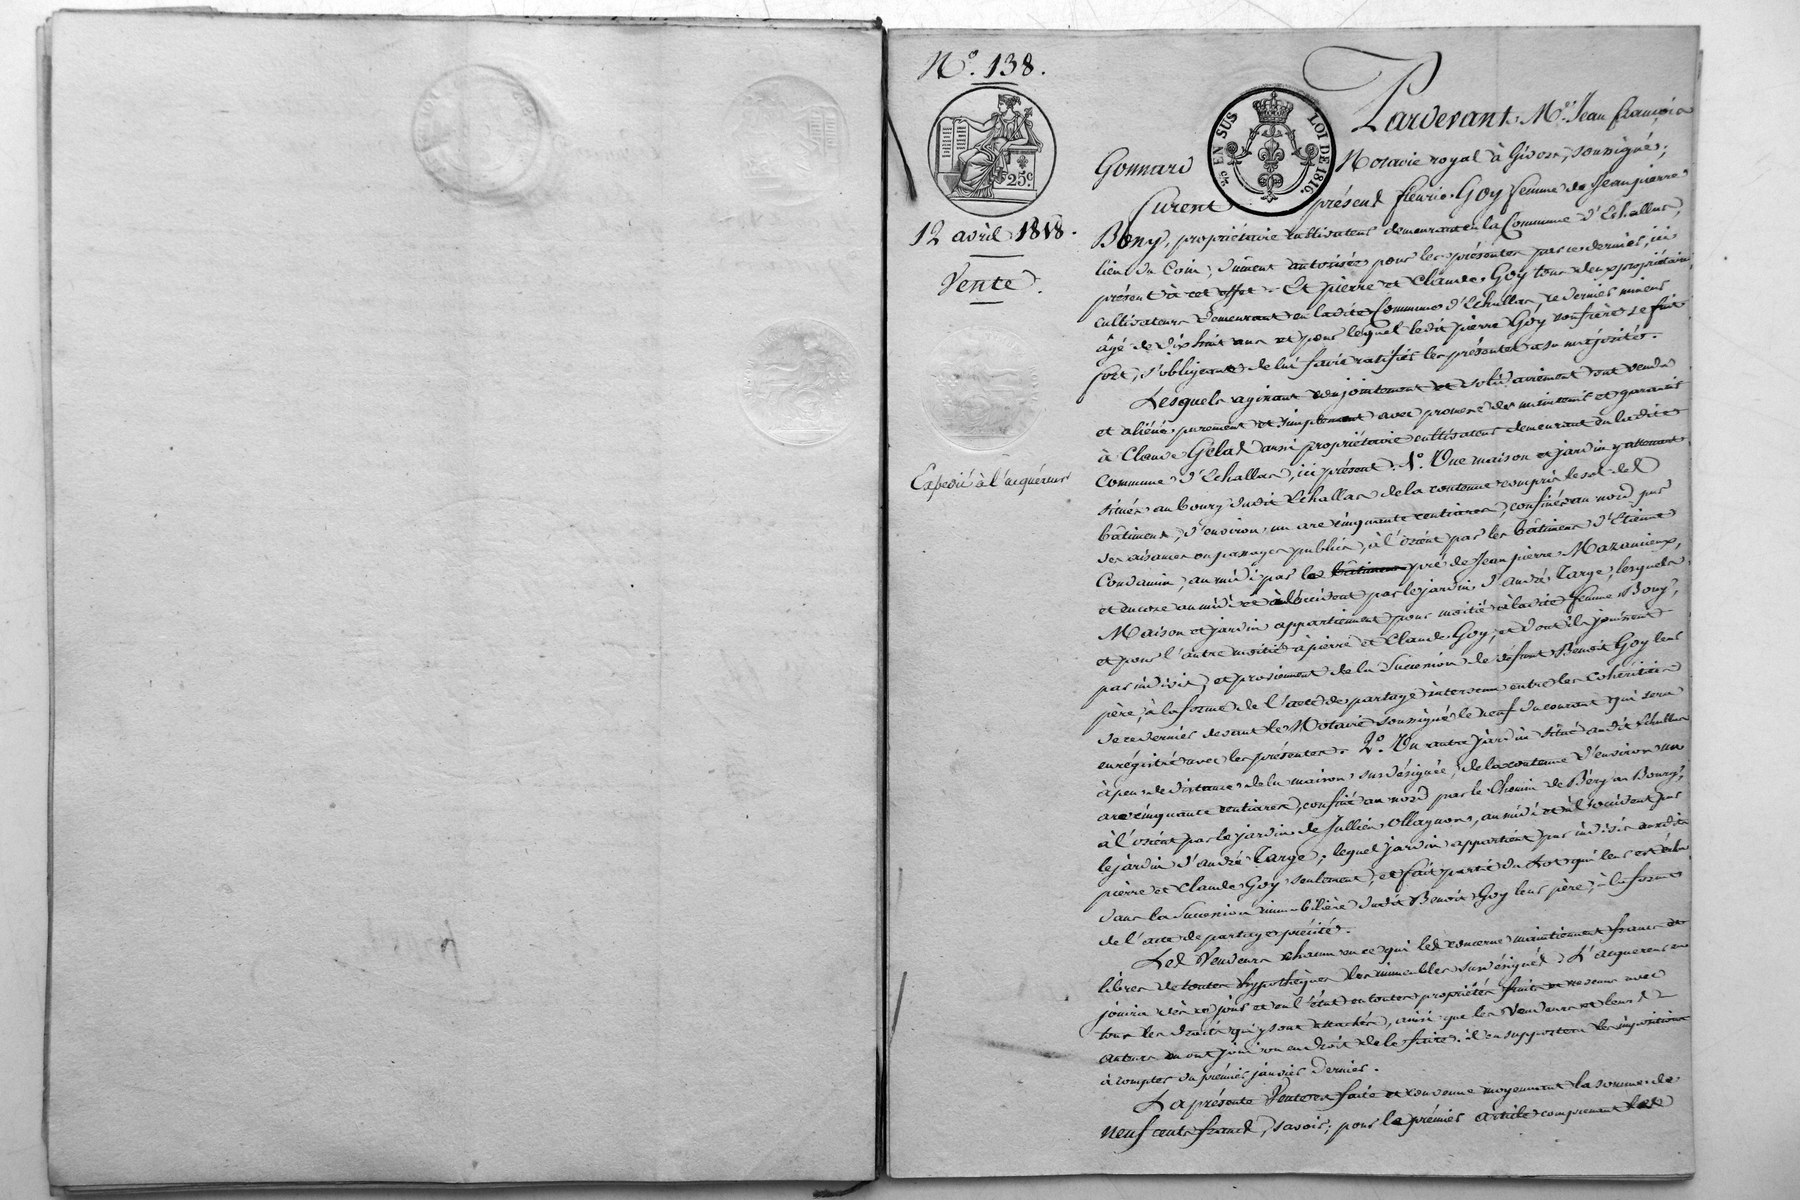 N.º 138.
25.c
12 avril 1818.
Vente.
Expédié à l'acquéreur
EN SUS
LOI DE 1816.
Pardevant M.e Jean françois
Gonnard Notaire royal à Givors, soussigné;
furent présent fleurie Goy femme de Jean pierre
Bony, propriétaire cultivateur demeurant en la Commune d'Echallas,
lieu du Coin, dûment autorisée pour les présentes par ce dernier, ici
présent à cet effet. Et pierre et Claude Goy tous deux propriétaires
cultivateurs demeurant en ladite Commune d'Echallas, ce dernier mineur
âgé de dix huit ans et pour lequel ledit pierre Goy son frère se fait
fort, s'obligeant de lui faire ratifier les présentes à sa majorité.
Lesquels agissant conjointement et solidairement ont vendu
et aliéné purement et simplement avec promesse de maintenir et garantir
à Claude Gélas aussi propriétaire cultivateur demeurant en ladite
Commune d'Echallas, ici présent. 1.º Une maison et jardin y attenant
situés au bourg dudit Echallas de la contenue compris le sol del
bâtiment, d'environ un are cinquante centiares, confinés au nord par
des aisances ou passages publics, à l'orient par les bâtiments d'Etienne
Condamin, au midi par le bâtiment pré de Jean pierre Mazanieux,
et encore au midi et à l'occident par le jardin d'andré Targe, lesquels
Maison et jardin appartiennent pour moitié à ladite femme Bony,
et pour l'autre moitié à pierre et Claude Goy, et dont ils jouissent
par indivis, et proviennent de la Succession de défunt Benoit Goy leur
père, à la forme de l'acte de partage intervenu entre les cohéritiers
de ce dernier devant le Notaire soussigné le neuf du courant qui sera
enrégistré avec les présentes. 2.º Un autre jardin situé audit Echallas
à peu de distance de la maison susdésignée, de la contenue d'environ un
are cinquante centiares, confiné au nord par le Chemin de Béry au Bourg,
à l'orient par le jardin de Jullien Ollagnon, au midi et à l'occident par
le jardin d'andré Targe; lequel jardin appartient par indivis auxdits
pierre et Claude Goy seulement, et fait partie du Lot qui leur est échu
dans la Succession immobilière dudit Benoit Goy leur père, à la forme
de l'acte de partage précité.
Les Vendeurs chacun en ce qui les concerne maintiennent francs et
libres de toutes hypothèques les immeubles susdésignés. L'acquéreur en
jouira dès ce jour et en l'état en toutes propriétés fruits et revenus avec
tous les droits qui y sont attachés, ainsi que les Vendeurs et leurs
auteurs en ont joui ou eu droit de le faire. il en supportera les impositions
à compter du prémier janvier dernier.
La présente Vente est faite et convenue moyennant la somme de
neuf cents francs, savoir; pour le prémier article comprenant les